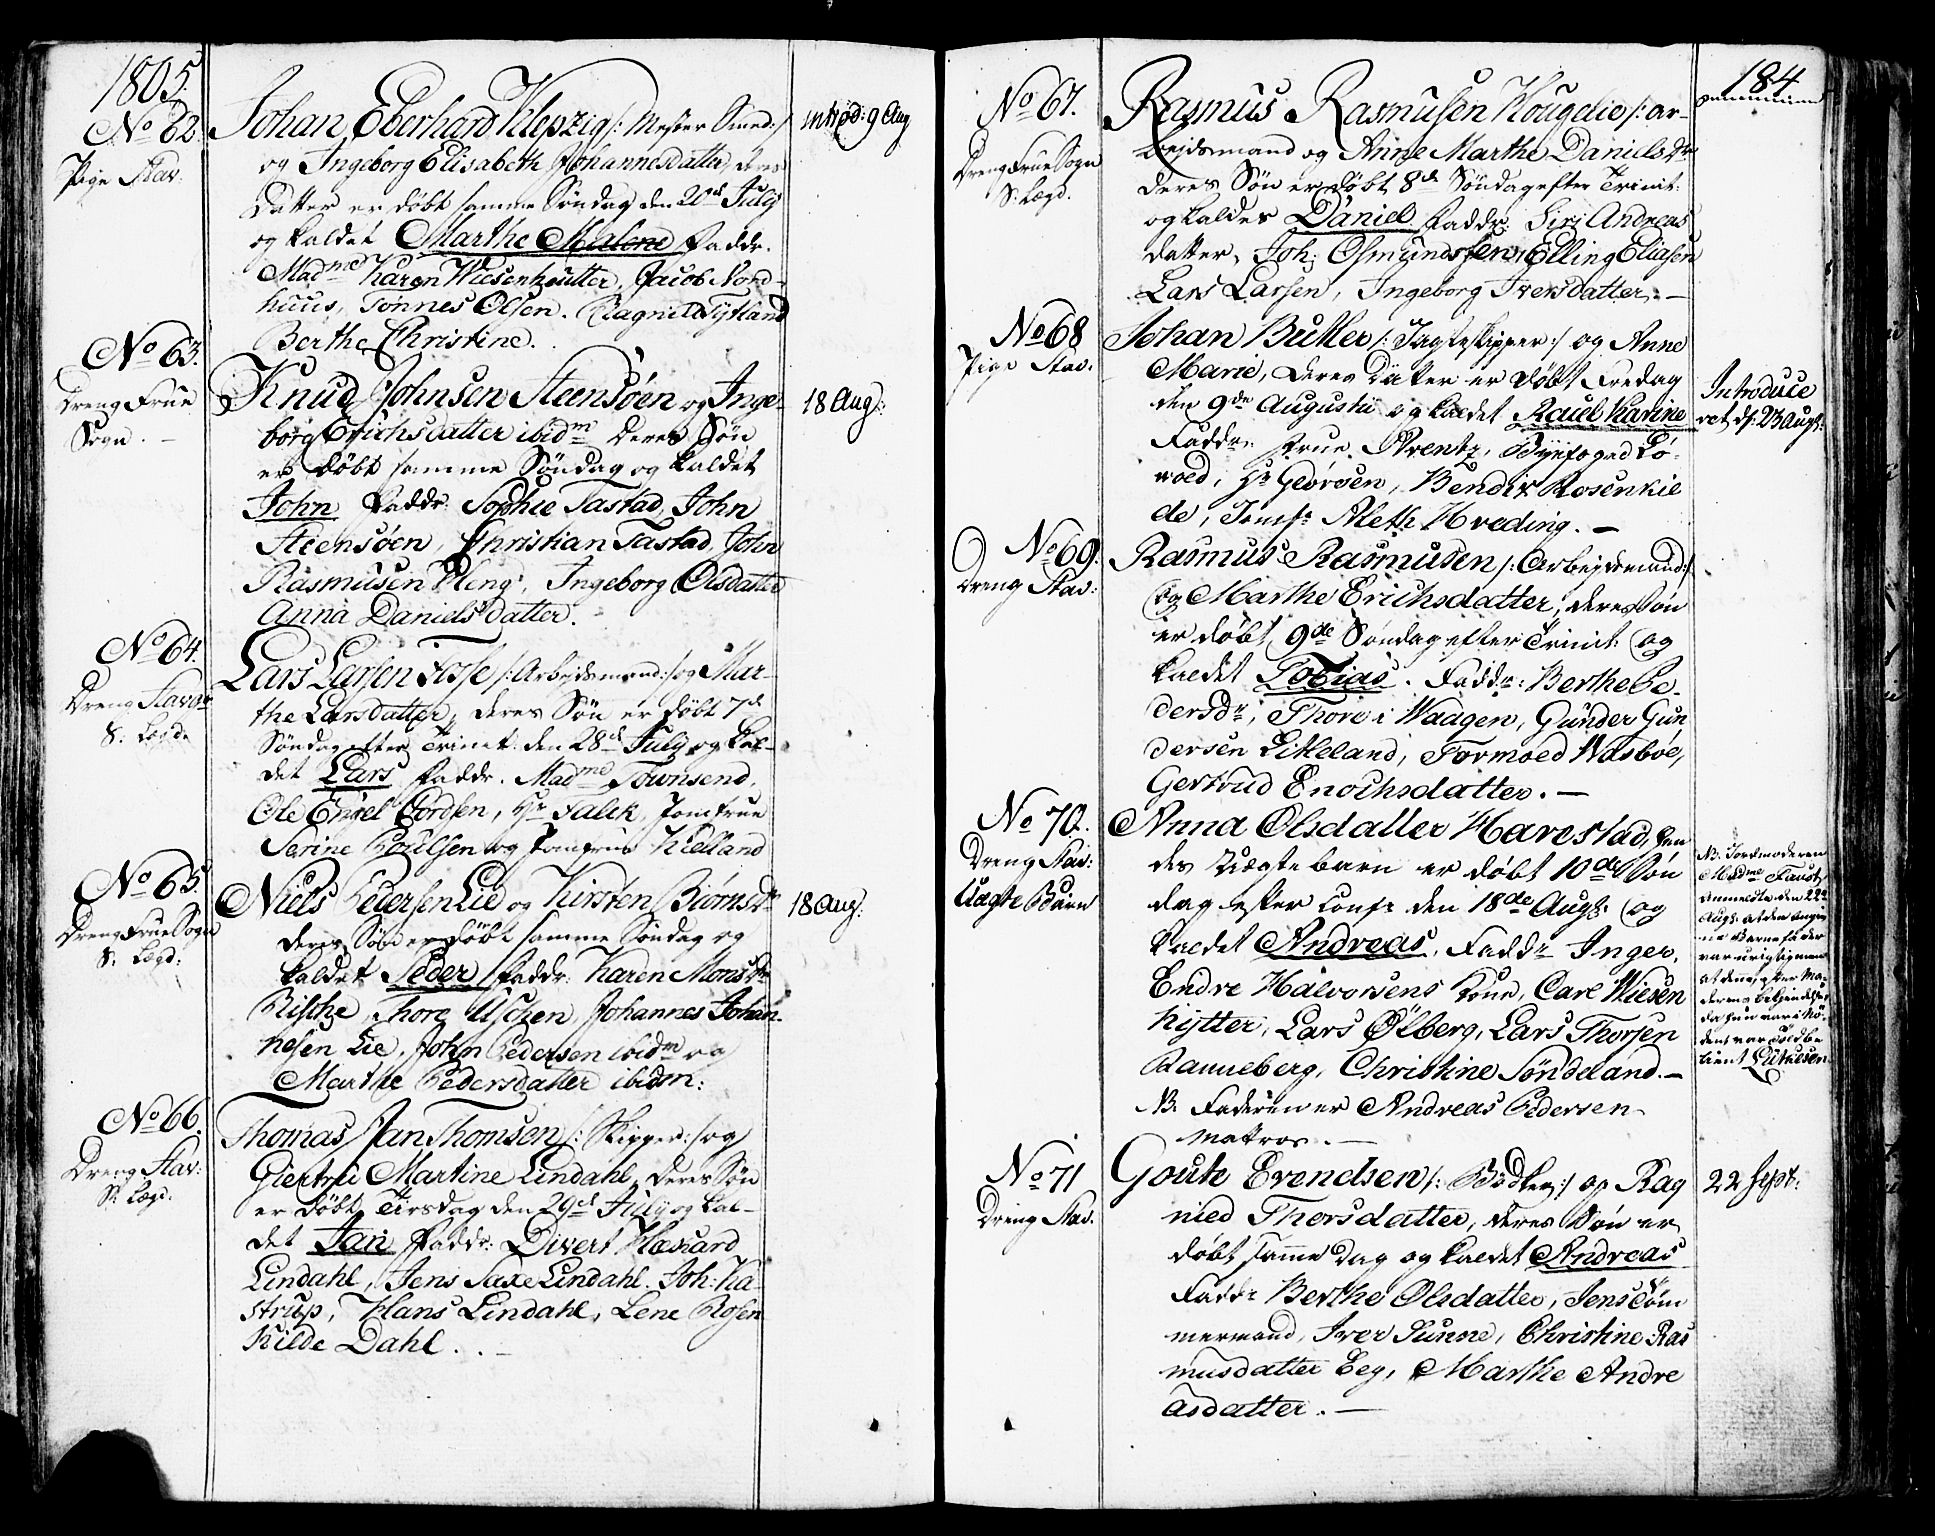 1805.
No 62.
Pige Stav.
Johan Eberhard Klepzig /: Mester Smed :/
og Ingeborg Elisabeth Johannesdatter, deres
Datter er døbt samme Søndag den 20de July
og kaldet Marthe Malene Faddr.
Madme Karen Wiesenhutter, Jacob Nord-
huus, Tønnes Olsen. Ragnild Tytland
Berthe Christine.
introd: 9 Aug
No 63.
Dreng Frue
Sogn. -
Knud Johnsen Steensøen og Inge-
borg Erichsdatter ibidm Deres Søn
er døbt samme Søndag og kaldet
John Faddr: Sophie Tastad, John
Steensøen, Christian Tastad, John
Rasmusen Eleng, Ingeborg Olsdatter
Anna Danielsdatter.
18 Aug:
No 64.
Dreng Stavan
S. Lægd.
Lars Larsen Fosse /: Arbejdsmand :/ og Mar-
the Larsdatter, deres Søn er døbt 7de
Søndag efter Trinit: den 28de July og kal-
det Lars Faddr. Madme Townsend,
Ole Engel Cordsen, Hr Falck, Jomfrue
Serine Poulsen og Jomfrue Kielland
No 65.
Dreng Frue Sogn
S. Lægd:
Niels Pedersen Lie og Kirsten Biørnsdr
deres Søn er døbt samme Søndag og
kaldet Peder Faddr: Karen Monsdr
Riske, Thore Aschen, Johannes Johan-
nesen Lie, John Pedersen ibidm og
Marthe Pedersdatter ibidm:
18 Aug:
No 66.
Dreng Stav:
S. Lægd.
Thomas Jan Thomsen /: Skipper :/ og
Giertrü Martine Lindahl, deres Søn
er døbt Tirsdag den 29de July og kal-
det Jan Faddr: Divert
Lindahl, Jens Saxe Lindahl. Joh: Ka-
strup, Hans Lindahl, Lene Rosen
Kilde Dahl. . -
184
No 67.
Dreng Frue Sogn
S. Lægd.
Rasmus Rasmusen Hougelie /: ar-
bejdsmand og Anne Marthe Danielsdr
deres Søn er døbt 8de Søndag efter Trinit:
og kaldes Daniel Faddr: Siri Andreas
datter, Joh: Osmundssen, Elling Eliasen
Lars Larsen, Ingeborg Iversdatter. -
No 68
Pige Stav.
Johan Butler /: Jagteskipper :/ og Anne
Marie, deres Datter er døbt Fredag
den 9de Augustii og kaldet Rauel Karine
Faddre Frue Arentz, Byefoged Lø-
voed, Hr Georsen, Bendix Rosenkil
de, Jomfr Aleth Hveding. -
Introduce
ret d: 23 Augt:
No 69.
Dreng Stav:
Rasmus Rasmusen /: Arbejdsmand :/
og Marthe Erichsdatter, deres Søn
er døbt 9de Søndag efter Trinit: og
kaldet Tobias. Faddr: Berthe Pe-
dersdr, Thore i Waagen, Gunder Gun
dersen Eikeland, Tormoed Wasbøe,
Gertrud Enochsdatter. -
No 70.
Dreng Stav:
Uægte Barn
Anna Olsdatter Harestad, hen
des Uægte barn er døbt 10de Søn
dag efter den 18de Augt: og
kaldet Andreas, Faddr Inger,
Endre Halvorsens kone, Carl Wiesen
hytter, Lars Ølberg, Lars Thorsen
Ranneberg, Christine Søndeland. -
NB. Faderen er Andreas Pedersen
Matros. -
NB: Jordmoderen
Madme Faust
anmeldte den 22de
Augt: at den angiv
ne Barnefader
var urigtig
at denne efter Mo
derens bekiendelse,
da hun var i Nø-
den, var Soldbe
tient
No 71
Dreng Stav.
Goute Evendsen /: Bødker :/ og Rag
nied Thorsdatter, deres Søn er
døbt samme Dag og kaldet Andreas
Faddr Berthe Olsdatter, Jens Tøm
mermand, Iver Sunne, Christine Ras
musdatter Eeg, Marthe Andre
asdatter. -
22 Sept: